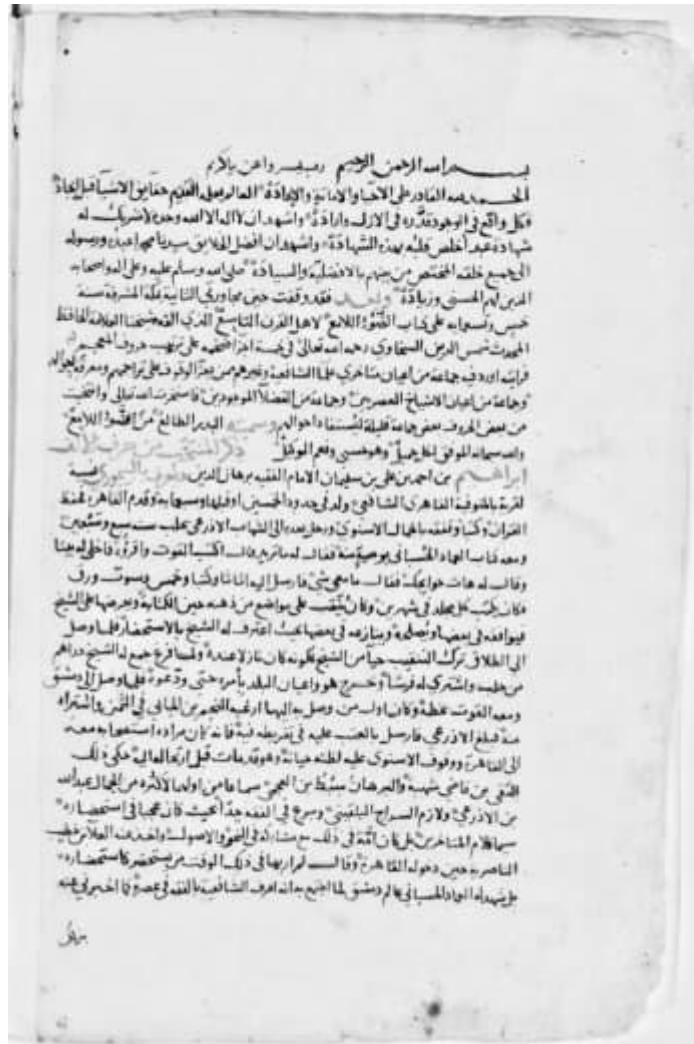 بسم الله الرحمن الرحيم رب يسر واعن يا كريم
الحمد لله القادر على الاحيا والاماتة والاعادة العالم بعلمه القديم حقايق الاشيا قبل
فكل واقع في الوجود قدره في الازل واراده واشهد ان لا اله الا الله وحده لا شريك له
شهادة عبد اخلص قلبه بهذه الشهادة واشهد ان افضل الخلايق سيدنا محمدا عبده ورسوله
الى جميع خلقه المختص من بينهم بالافضلية والسيادة صلى الله وسلم عليه وعلى اله واصحابه
الذين لهم الحسنى وزيادة وبعد فقد وقفت حين مجاورتي الثانية بمكة المشرفة سنة
خمس وتسعمايه على كتاب الضوء اللامع لاهل القرن التاسع الذي الفه شيخنا العلامة الحافظ
المحدث شمس الدين السخاوي رحمه الله تعالى في خمسة اجزا ضخمة على ترتيب حروف المعجم
فرايته اورد فيه جماعة من اعيان متاخري علما الشافعية وغيرهم ممن الوقوف على تراجمهم ومعرفة
وجماعة من اعيان الاشياخ العصريين وجماعة من الفضلا الموجودين فاستخرت الله تعالى وانتخبت
من بعض الحروف بعض جماعة قليلة ليستفاد احوالهم وسميته البدر الطالع من الضوء اللامع
والله سبحانه الموفق لكل جميل وهو حسبي ونعم الوكيل ذكر المنتخب من حرف الالف
ابراهيم بن احمد بن علي بن سليمان الامام الفقيه برهان الدين ويعرف بالبيجوري نسبة
لقرية بالمنوفية القاهري الشافعي ولد في حدود الخمسين او قبلها وسبعمايه وقدم القاهرة فحفظ
القران وكتبا وتفقه بالجمال الاسنوي ورحل بعده الى الشهاب الاذرعي بحلب سنة سبع وسبعين
ومعه كتاب العماد الحسباني بوصية منه فقال له ما تريد قال اكتب القوت واقرؤه فاخلى له بيتا
وقال له هات حوايجك فقال ما معي شي فارسل اليه اثاثا وكتبا وخمس دسوت ورق
فكان يكتب كل مجلد في شهرين وكان ينقب على مواضع من ذهنه حين الكتابة ويعرضها على الشيخ
فيوافقه في بعضها ويصلحه وينازعه في بعضها بحيث اعترف له الشيخ بالاستحضار فلما وصل
الى الطلاق ترك التنقيب حيا من الشيخ لكونه كان نازلا عنده ولما فرغ جمع له الشيخ دراهم
من واشترى له فرسا وخرج هو واعيان البلد بامره حتى ودعوه فلما وصل الى دمشق
ومعه القوت عظمه وكان اول من وصل به اليها ارغبه النجم بن الجابي في الثمن واشتراه
منه فبلغ الاذرعي فارسل بالعتب عليه في تفريطه فيه فانه كان مراده استصحابه معه
الى القاهرة ووقوف الاسنوي عليه لظنه حياته وهو قد مات قبل ارتحاله اليه حكى ذلك
التقي بن قاضي شهبة والبرهان سبط ابن العجمي سماعا من اولهما لاكثره من الجمال عبد الله
بن الاذرعي ولازم السراج البلقيني وبرع في الفقه جدا بحيث كان عجبا في استحضاره
سيما كلام المتاخرين بل كان امة في ذلك مع مشاركة في النحو والاصول واخذ عنه العلا بن خطيب
الناصرية حين دخوله القاهرة وقال لم ار بها في ذلك الوقت من يستحضر كاستحضاره
بل شهد له العماد الحسباني عالم دمشق لما اجتمع به انه اعرف الشافعية بالفقه في عصره كما اخبرني عنه